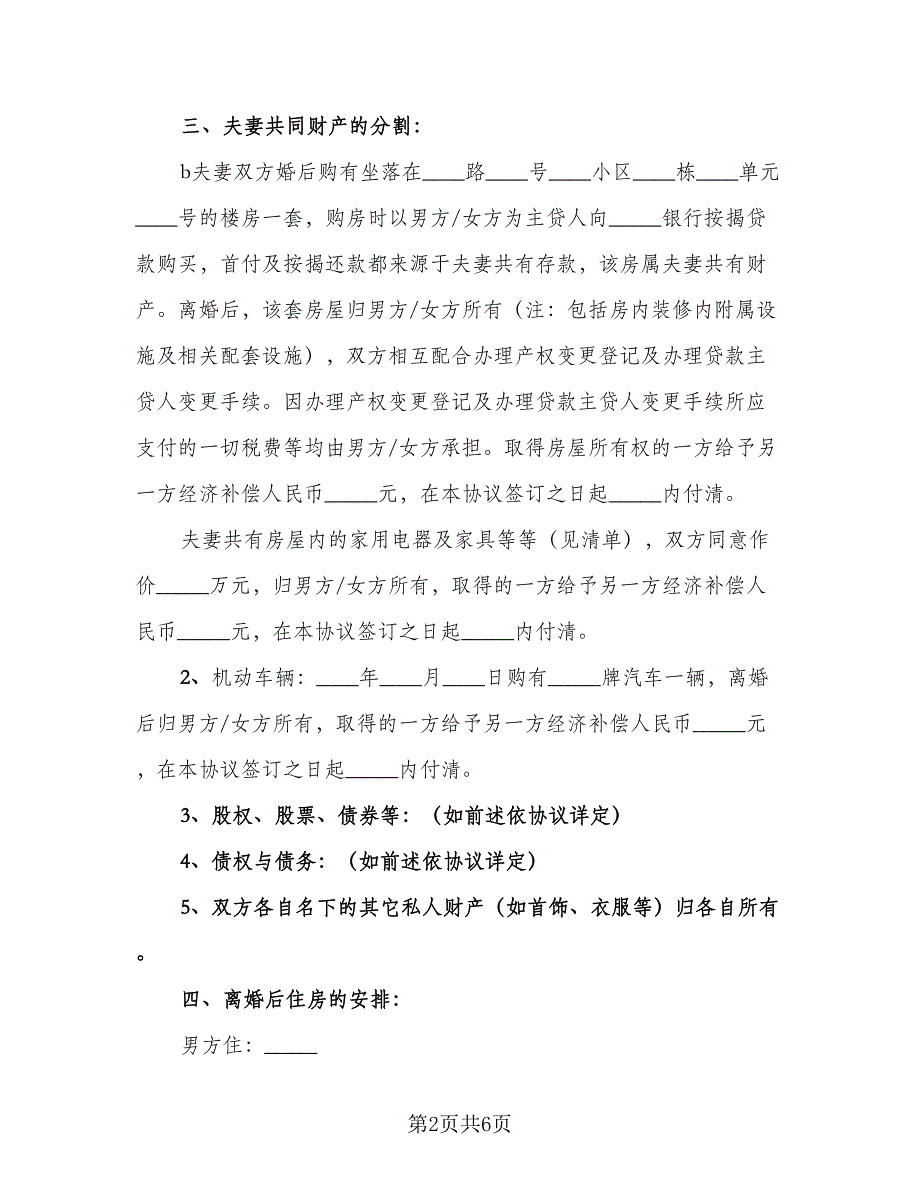 三、夫妻共同财产的分割：
b夫妻双方婚后购有坐落在____路____号____小区____栋____单元
____号的楼房一套，购房时以男方/女方为主贷人向_____银行按揭贷
款购买，首付及按揭还款都来源于夫妻共有存款，该房属夫妻共有财
产。离婚后，该套房屋归男方/女方所有（注：包括房内装修内附属设
施及相关配套设施），双方相互配合办理产权变更登记及办理贷款主
贷人变更手续。因办理产权变更登记及办理贷款主贷人变更手续所应
支付的一切税费等均由男方/女方承担。取得房屋所有权的一方给予另
一方经济补偿人民币_____元，在本协议签订之日起_____内付清。
夫妻共有房屋内的家用电器及家具等等（见清单），双方同意作
价_____万元，归男方/女方所有，取得的一方给予另一方经济补偿人
民币_____元，在本协议签订之日起_____内付清。
2、机动车辆：____年____月____日购有_____牌汽车一辆，离婚
后归男方/女方所有，取得的一方给予另一方经济补偿人民币_____元
，在本协议签订之日起_____内付清。
3、股权、股票、债券等：（如前述依协议详定）
4、债权与债务：（如前述依协议详定）
5、双方各自名下的其它私人财产（如首饰、衣服等）归各自所有
。
四、离婚后住房的安排：
男方住：_____
第2页共6页